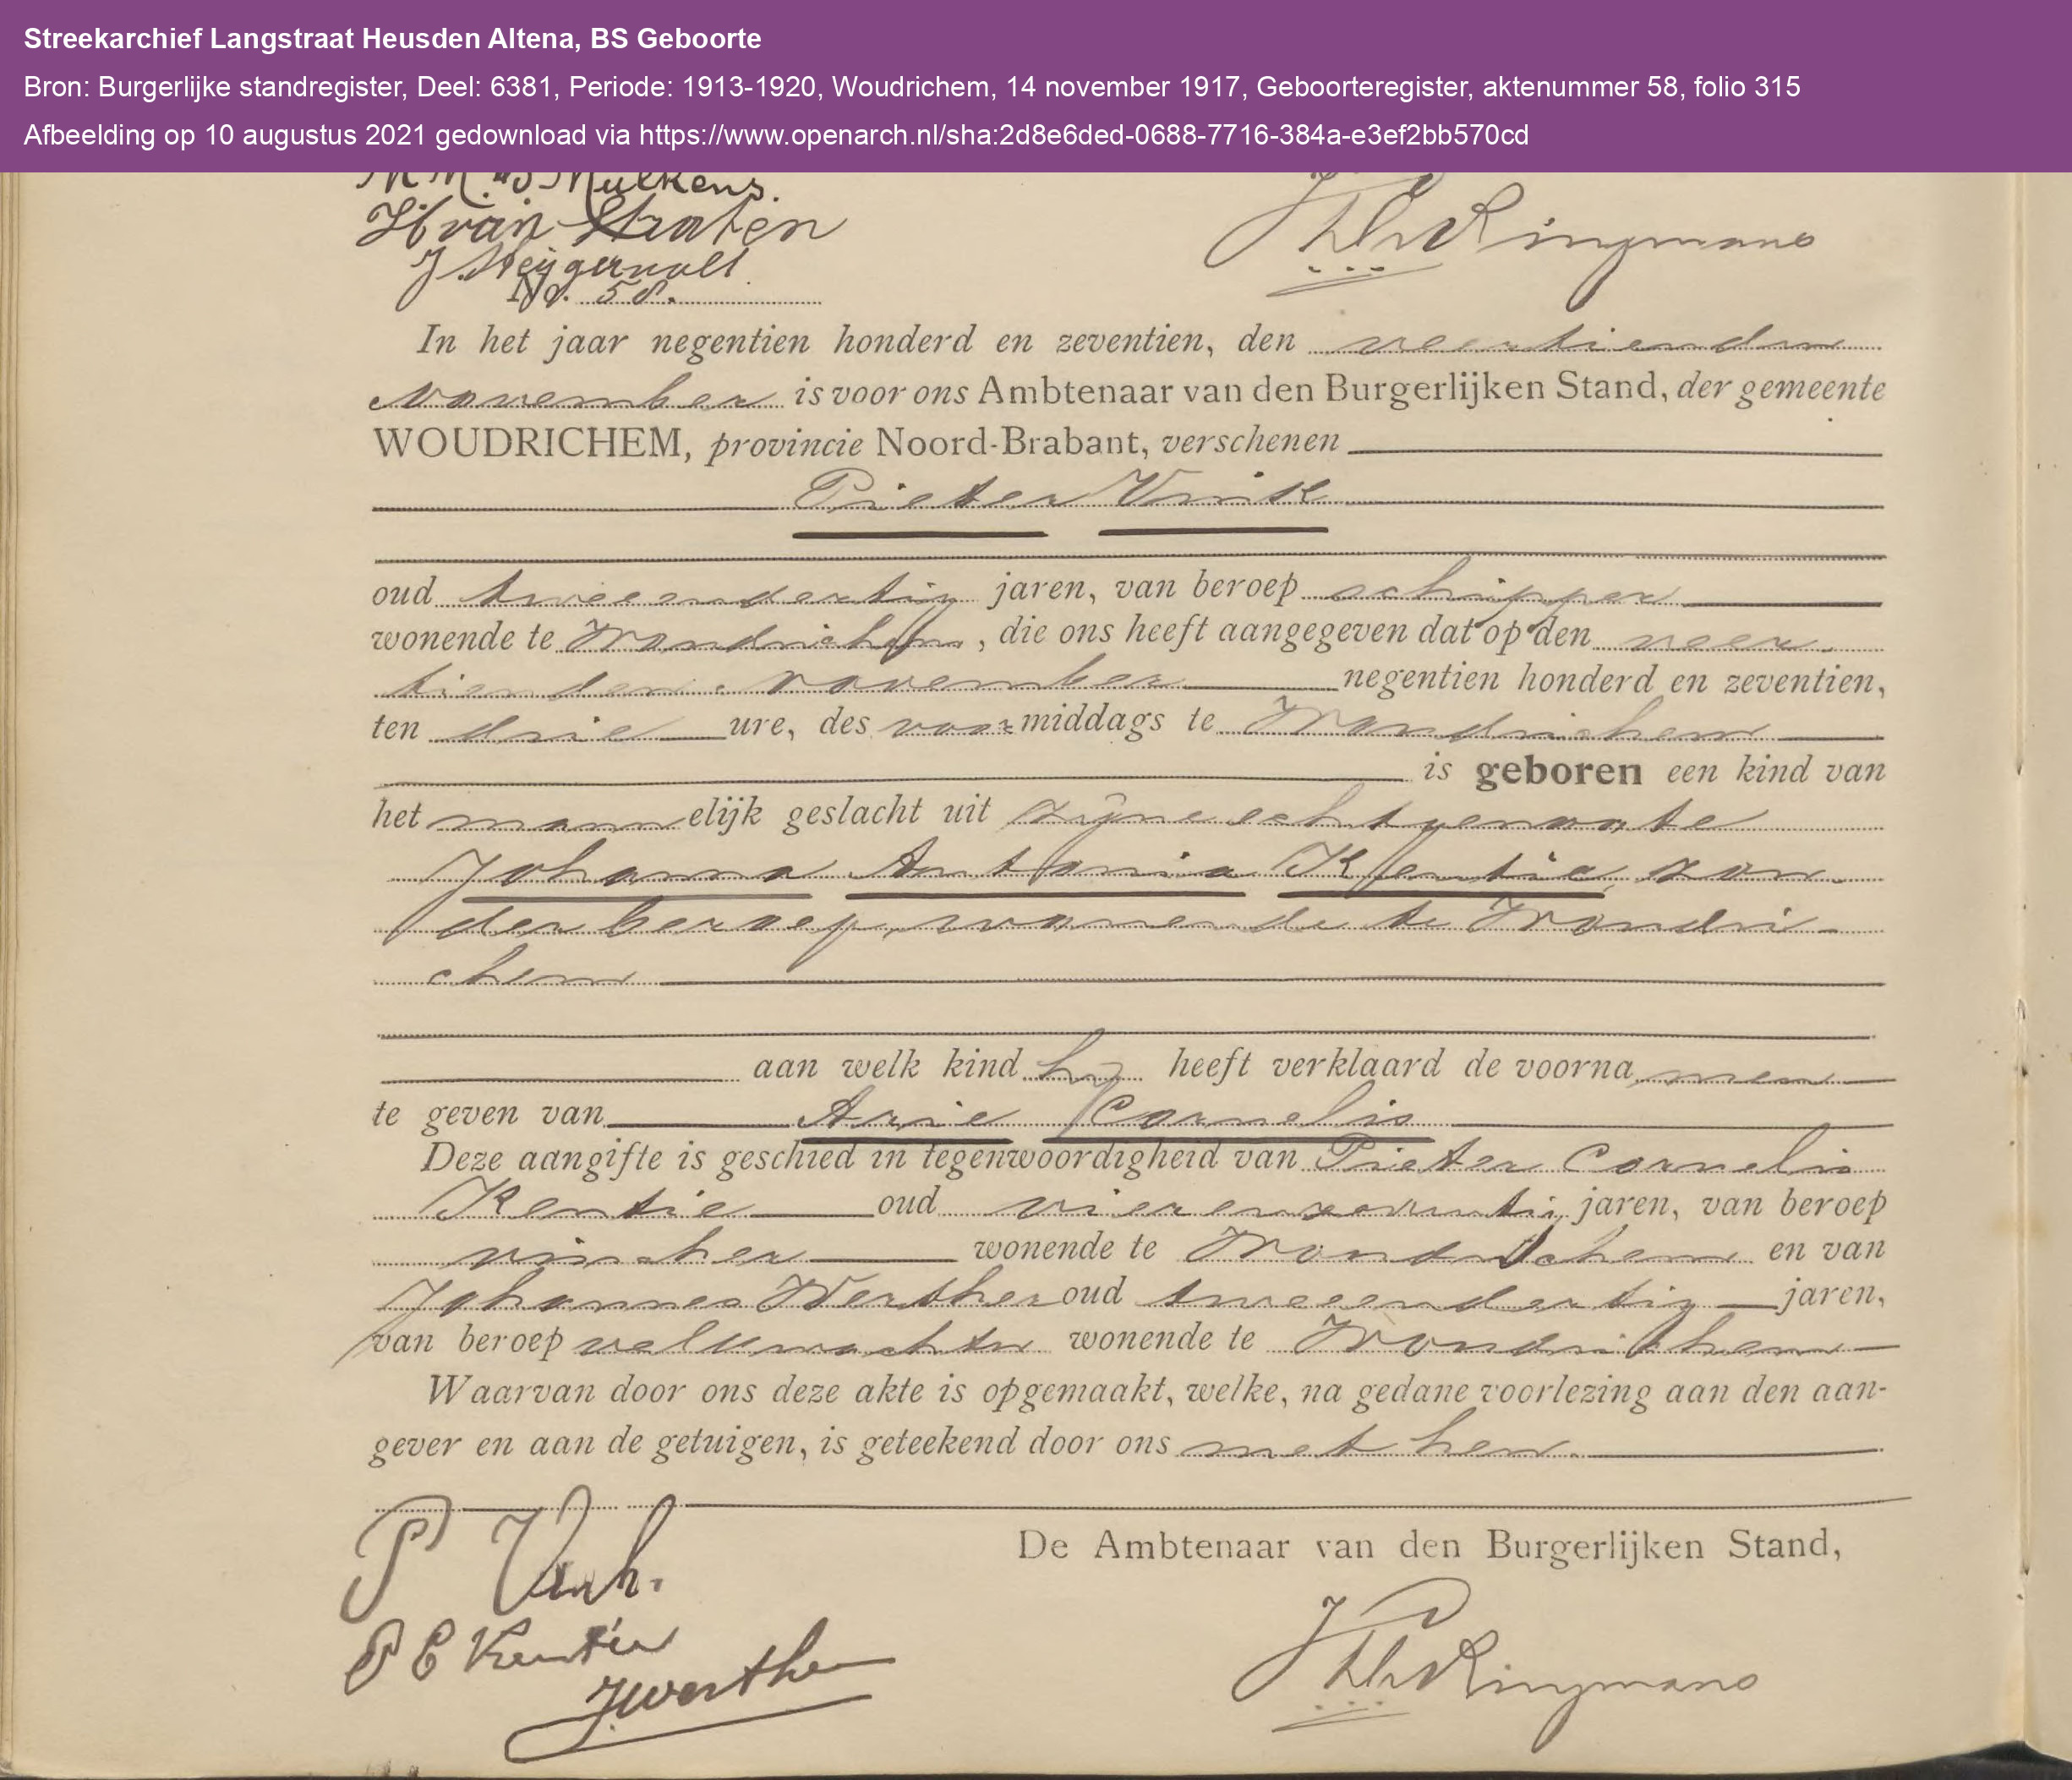 Streekarchief Langstraat Heusden Altena, BS Geboorte
Bron: Burgerlijke standregister, Deel: 6381, Periode: 1913-1920, Woudrichem, 14 november 1917, Geboorteregister, aktenummer 58, folio 315
Afbeelding op 10 augustus 2021 gedownload via https://www.openarch.nl/sha:2d8e6ded-0688-7716-384a-e3ef2bb570cd
Mulkens.
H van Straten
No. 58.
In het jaar negentien honderd en zeventien, den veertienden
November is voor ons Ambtenaar van den Burgerlijken Stand, der gemeente
WOUDRICHEM, provincie Noord-Brabant, verschenen
Pieter Vink
oud tweeendertig jaren, van beroep schipper
wonende te Woudrichem, die ons heeft aangegeven dat op den veer-
tienden november negentien honderd en zeventien,
ten drie ure, des voormiddags te Woudrichem
is geboren een kind van
het mannelijk geslacht uit zijne echtgenoote
Johanna Antonia Kentie, zon-
der beroep, wonende te Woudri-
chem
aan welk kind hij heeft verklaard de voornamen
te geven van Arie Cornelis
Deze aangifte is geschied in tegenwoordigheid van Pieter Cornelis
Kentie oud vierenzeventig jaren, van beroep
visscher wonende te Woudrichem en van
Johannes Werther oud tweeendertig jaren,
van beroep veldwachter wonende te Woudrichem
Waarvan door ons deze akte is opgemaakt, welke, na gedane voorlezing aan den aan-
gever en aan de getuigen, is geteekend door ons met hen.
De Ambtenaar van den Burgerlijken Stand,
P Vink.
P C Kentie
J Werther